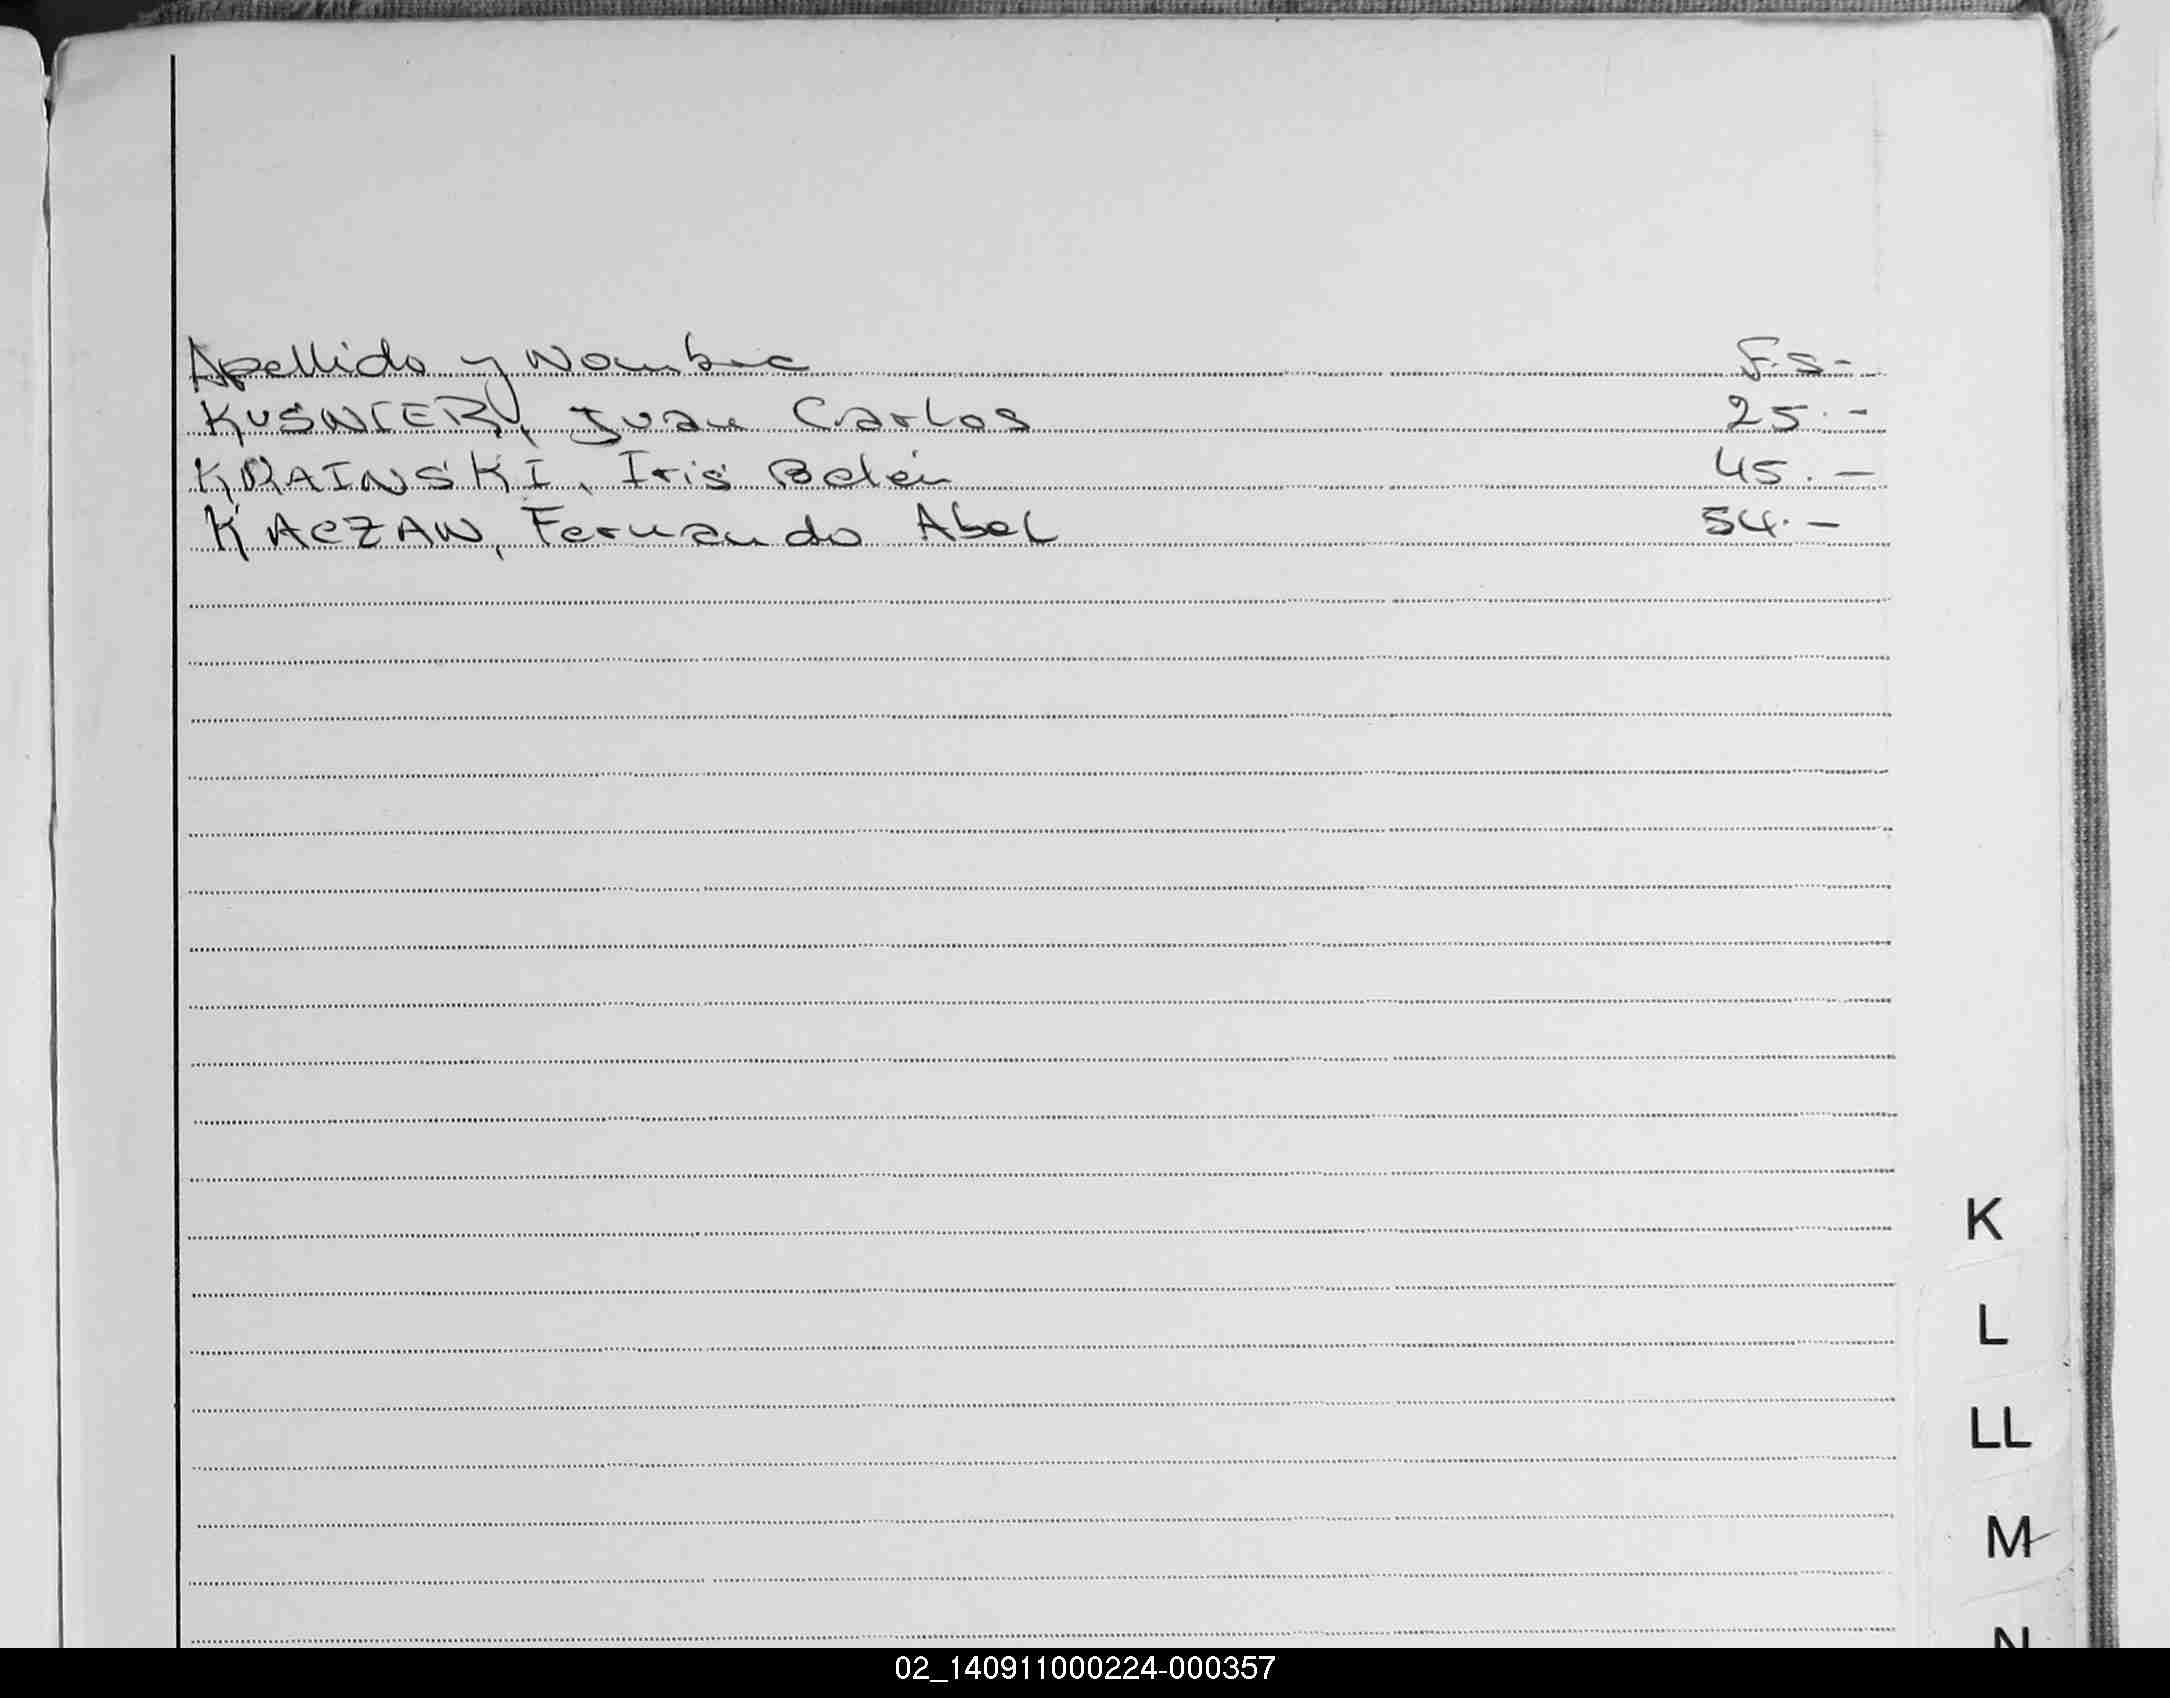 Apellido y Nombre F.S-
KUSNIER, Juan Carlos 25.-
KRAINSKI, Iris Belén 45.-
KACZAN, Fernando Abel 54.-
K
L
LL
M
N
02_140911000224-000357